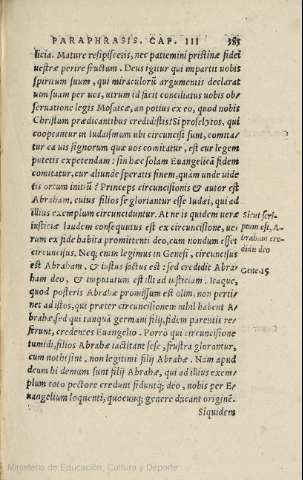 PARAPHRASIS. CAP. III 585
licia. Mature resipiscens, nec patiemini pristinæ fidei
uestræ perire fructum. Deus igitur qui impartit uobis
spiritum suum, qui miraculorũ argumentis declarat
uim suam per uos, utrum id facit conciliatus uobis ob
seruatione legis Mosaicæ, an potius ex eo, quod nobis
Christum prædicantibus credidistis? Si proselytos, qui
cooptantur in Iudaismum ubi circuncisi sunt, comita
tur ea uis signorum quæ uos comitatur, est cur legem
putetis expetendam: sin hæc solam Euangelicã fidem
comitatur, cur aliunde speratis finem, quàm unde uide
tis ortum initiũ? Princeps circuncisionis & autor est
Abraham, cuius filios se gloriantur esse Iudæi, qui ad
illius exemplum circunciduntur. At ne is quidem ueræ
iustitiæ laudem consequutus est ex circuncisione, ue-
rum ex fide habita promittenti deo, cum nondum esset
circuncisus. Neq; enim legimus in Genesi, circuncisus
est Abraham, & iustus factus est: sed credidit Abra
ham deo, & imputatum est illi ad iustitiam. Itaque,
quod posteris Abrahæ promissum est olim, non perti
net ad istos, qui præter circuncisionem nihil habent A-
brahæ, sed qui tanquã germani filij, fidem parentis re
ferunt, credentes Euangelio. Porrò qui circuncisione
tumidi, filios Abrahæ iactitant sese, frustra gloriantur,
cum nothi sint, non legitimi filij Abrahæ. Nam apud
deum hi demum sunt filij Abrahæ, qui ad illius exem-
plum toto pectore credunt fiduntq; deo, nobis per E-
uangelium loquenti, quocunq; genere ducant originẽ.
Siquidem
Sicut scri-
ptum est, A-
braham cre-
didit deo
Gene. 15
Ministerio de Educación, Cultura y Deporte